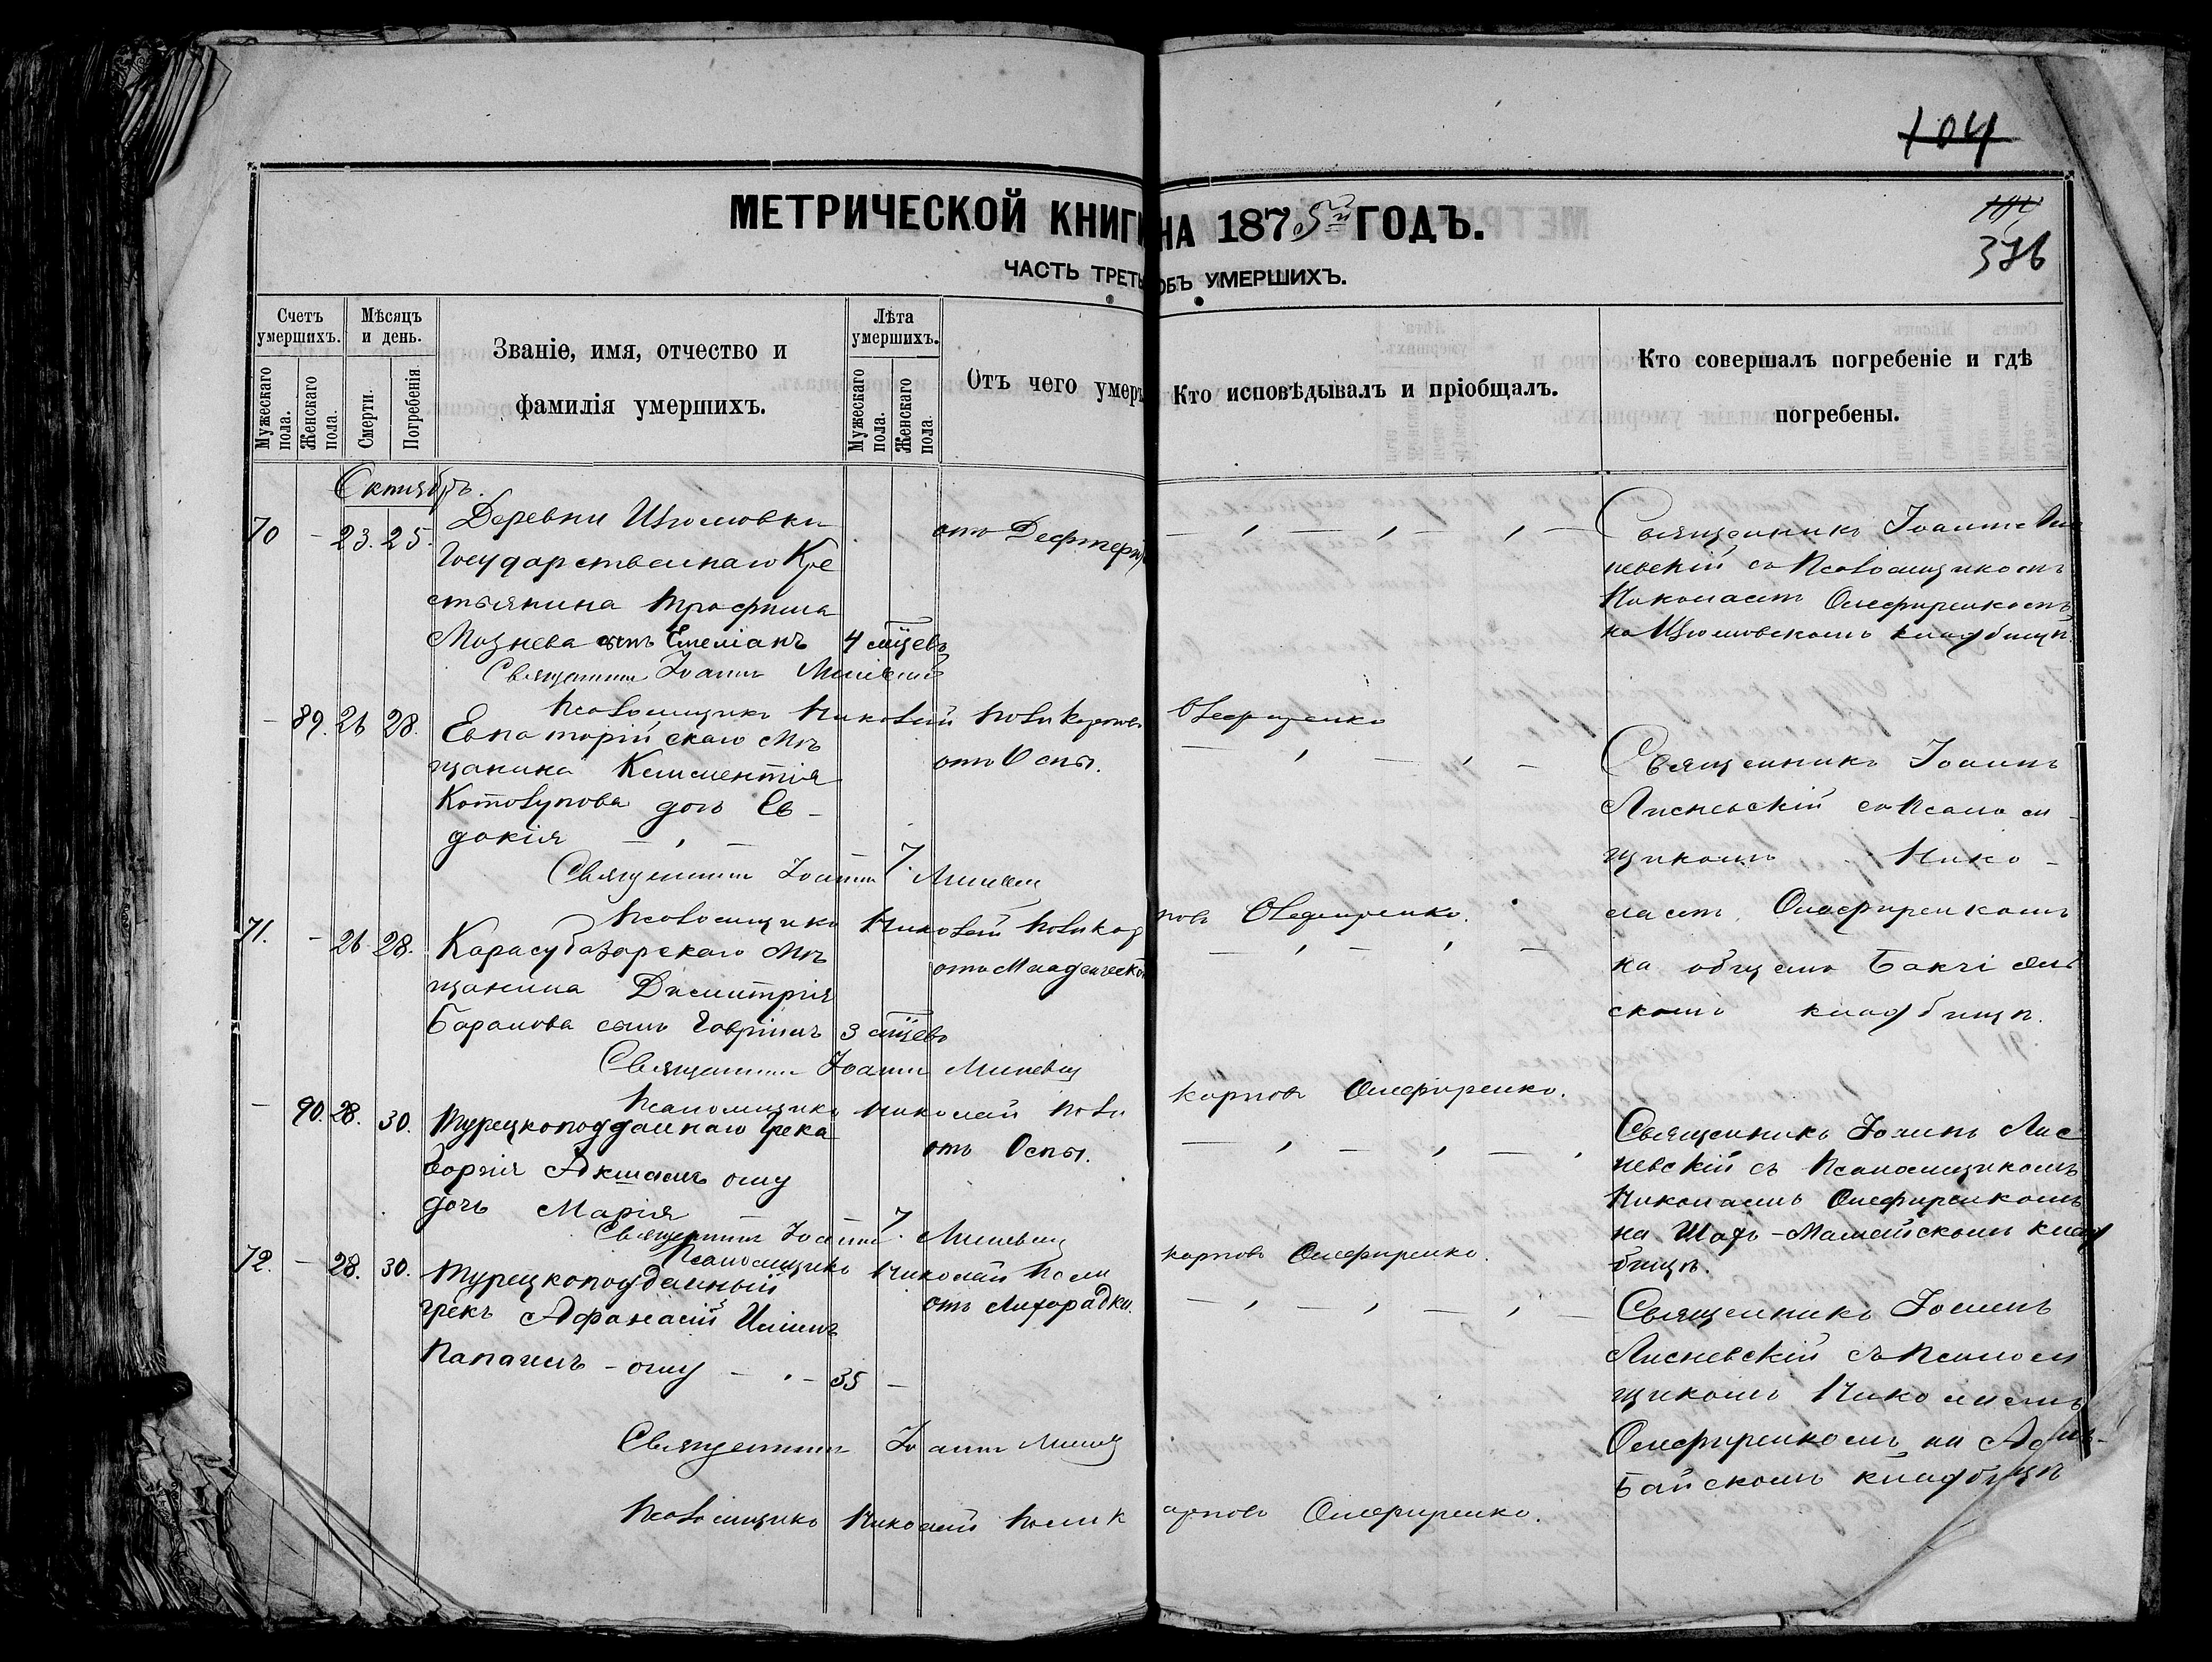 104
376
МЕТРИЧЕСКОЙ КНИГИ НА 1875й ГОДЪ.
ЧАСТЬ ТРЕТЬ ОБЪ УМЕРШИХЪ.
Счетъ умершихъ.
Мужескаго пола.
Женскаго пола.
Мѣсяцъ и день.
Смерти.
Погребенія.
Званіе, имя, отчество и
фамилія умершихъ.
Лѣта умершихъ.
Мужескаго пола.
Женскаго пола.
Отъ чего умеръ
Кто исповѣдывалъ и пріобщалъ.
Кто совершалъ погребеніе и гдѣ
погребены.
Октябрь.
70 - 23. 25. Деревни
Государственнаго Кре
стьянина Трофима
Мознева сынъ Емеліанъ 4 мцевъ
отъ Дефтерит
Священникъ Іоаннъ Лис
невскій съ Псаломщикомъ
Николаемъ Олефиренкомъ
на кладбищѣ.
Священникъ Іоаннъ
Псаломщикъ Николай Поликарповъ Олефиренко
- 89. 26 28. Евпаторійскаго Мѣ
щанина Климентія
дочь Ев-
докія - 7.
отъ Оспы.
Священникъ Іоаннъ
Лисневскій съ Псалом
щикомъ Нико-
лаемъ Олефиренкомъ
на общемъ
скомъ кладбищѣ.
Священникъ Іоаннъ
Псаломщикъ Николай Поликарповъ Олефиренко.
71. - 26 28. Карасубазарскаго Мѣ
щанина Димитрія
Баранова сынъ Гавріилъ 3 мцевъ
отъ Младенческой
Священникъ Іоаннъ
Псаломщикъ Николай Поликарповъ Олефиренко.
- 90. 28. 30. Турецкоподданнаго Грека
Георгія оглу
дочь Марія 7.
отъ Оспы.
Священникъ Іоаннъ Лис
невскій съ Псаломщикомъ
Николаемъ Олефиренкомъ
на Шахъ-Мамайскомъ клад
бищѣ.
Священникъ Іоаннъ
Псаломщикъ Николай Поликарповъ Олефиренко.
72. - 28. 30. Турецкоподданный
грекъ Афанасій
- оглу - 35 -
отъ Лихорадки.
Священникъ Іоаннъ
Лисневскій съ Псалом
щикомъ Николаемъ
Олефиренкомъ на
Байскомъ кладбищѣ
Священникъ Іоаннъ
Псаломщикъ Николай Поликарповъ Олефиренко.